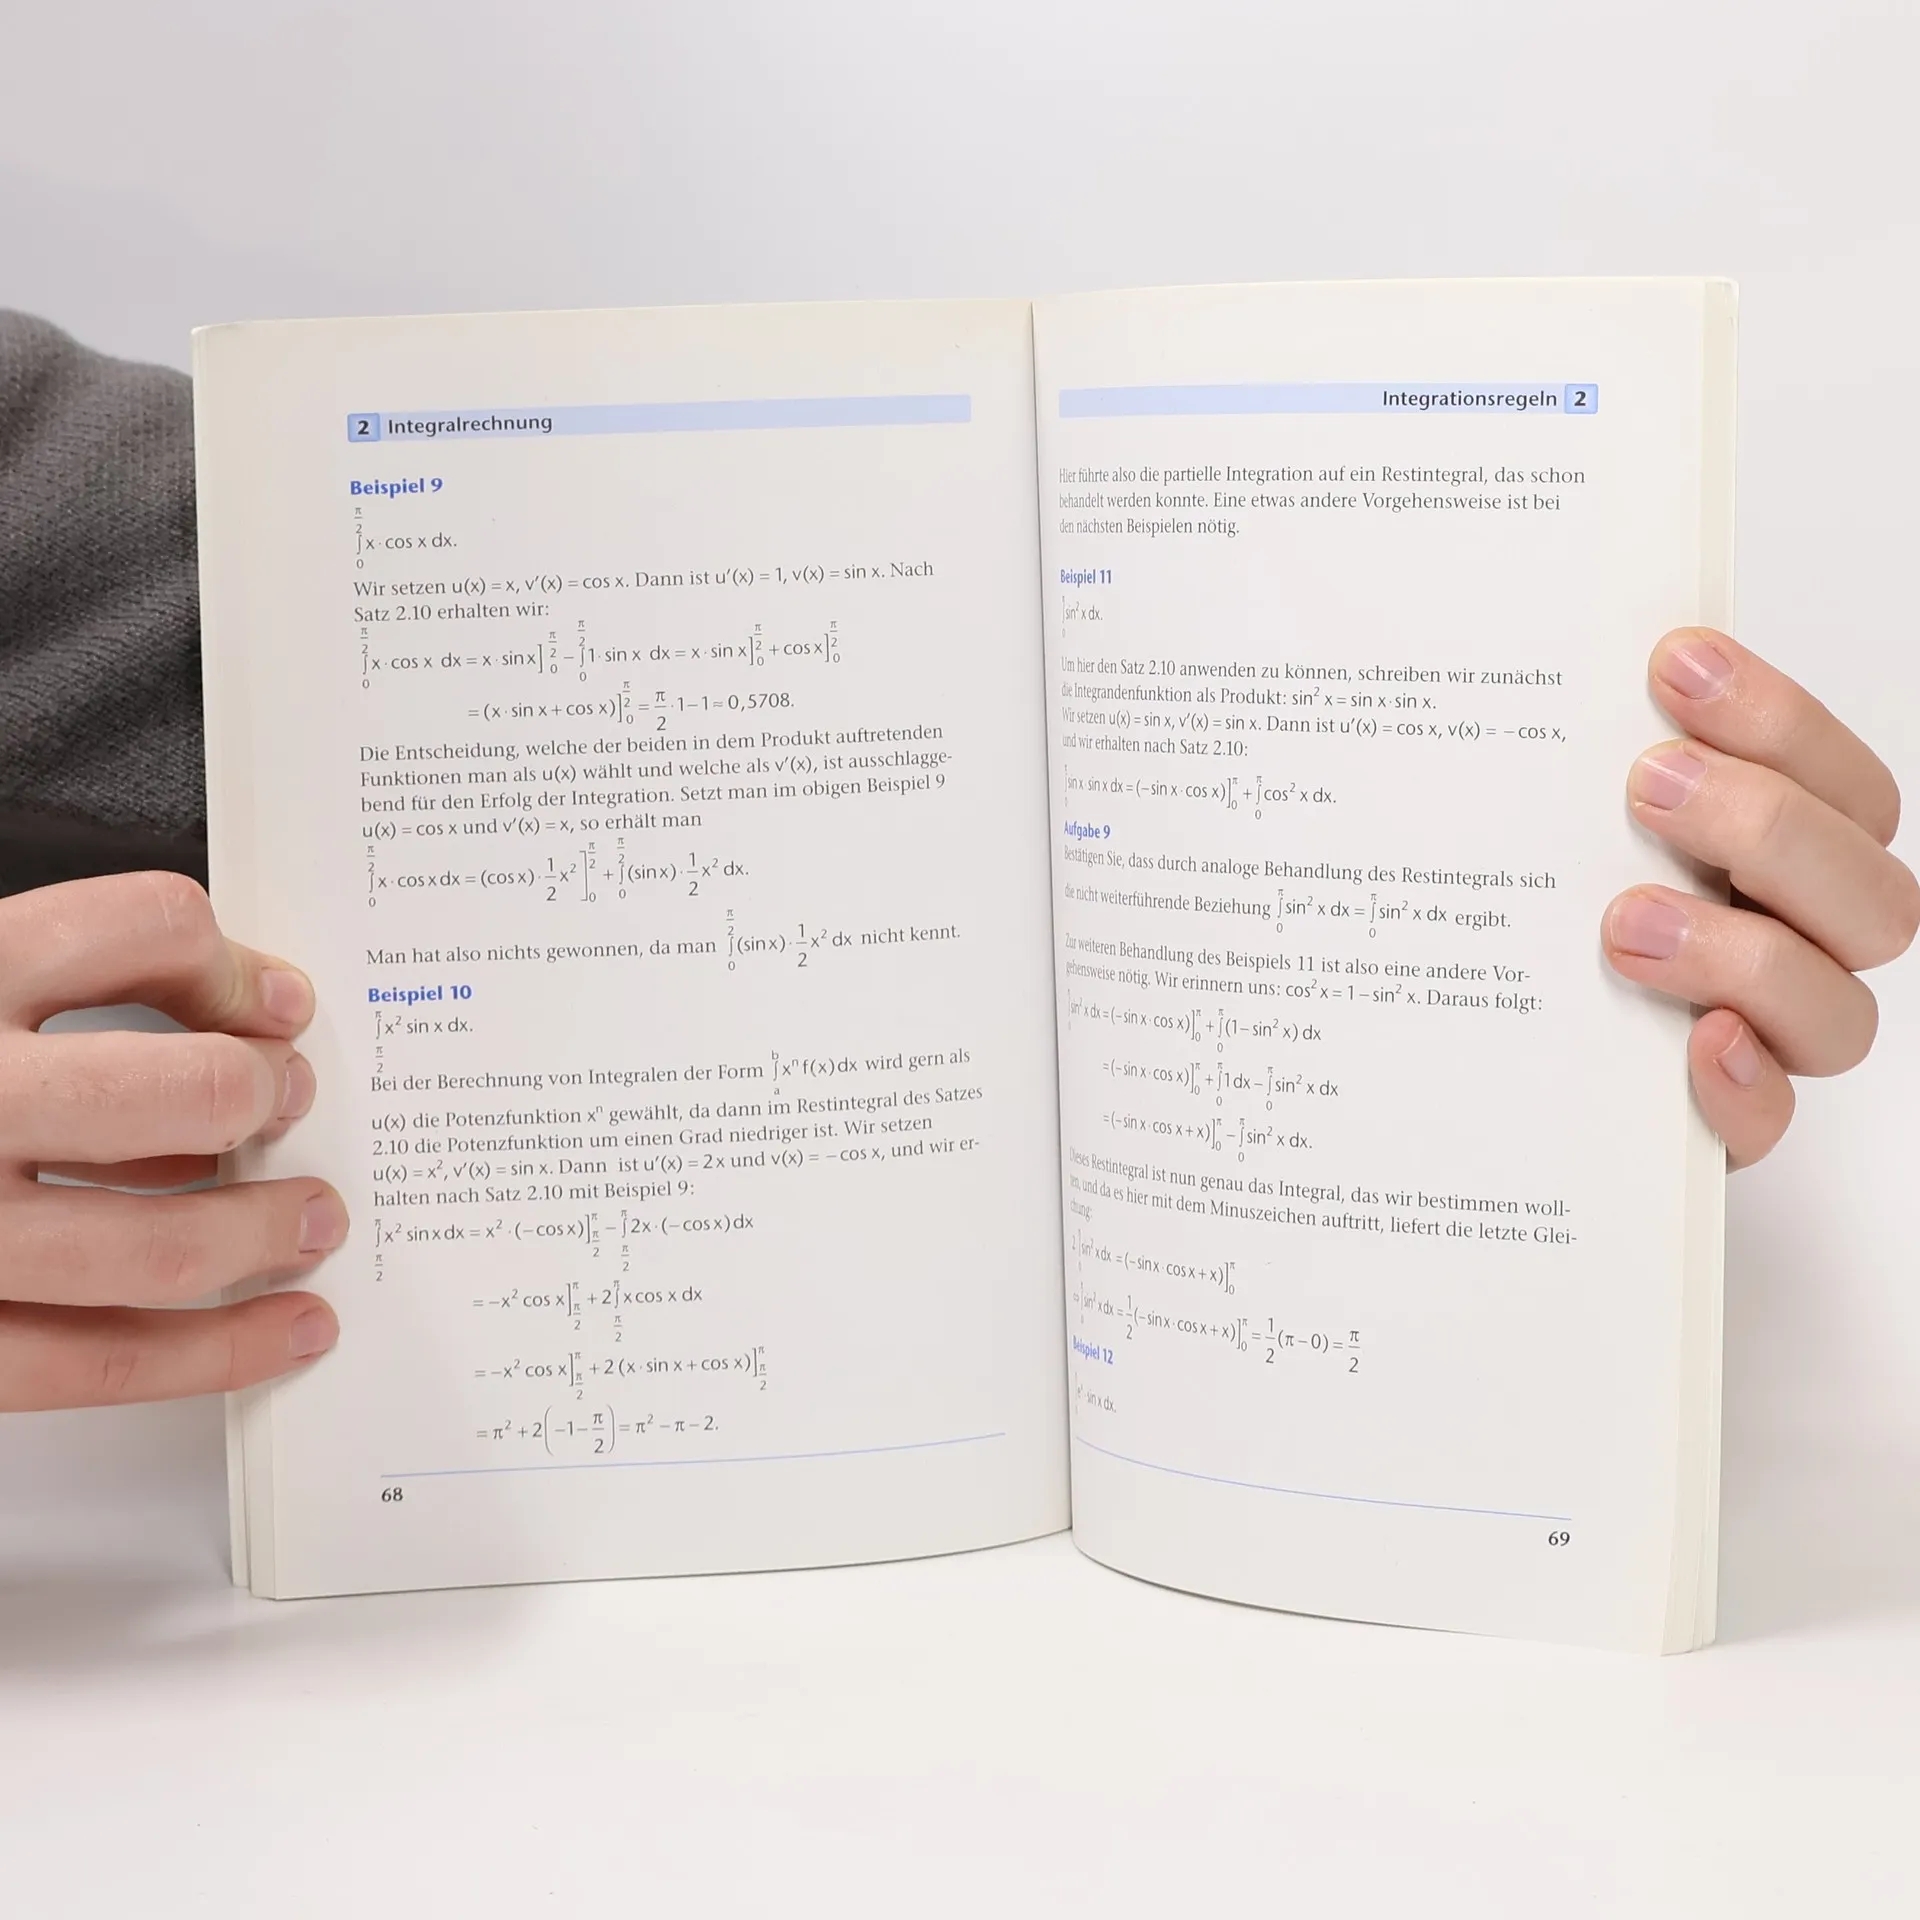 2 Integralrechnung
Beispiel 9
∫₀^{π/2} x · cos x dx.
Wir setzen u(x) = x, v′(x) = cos x. Dann ist u′(x) = 1, v(x) = sin x. Nach
Satz 2.10 erhalten wir:
∫₀^{π/2} x · cos x dx = x · sin x]₀^{π/2} − ∫₀^{π/2} 1 · sin x dx = x · sin x]₀^{π/2} + cos x]₀^{π/2}
= (x · sin x + cos x)]₀^{π/2} = π/2 · 1 − 1 ≈ 0,5708.
Die Entscheidung, welche der beiden in dem Produkt auftretenden
Funktionen man als u(x) wählt und welche als v′(x), ist ausschlagge-
bend für den Erfolg der Integration. Setzt man im obigen Beispiel 9
u(x) = cos x und v′(x) = x, so erhält man
∫₀^{π/2} x · cos x dx = (cos x) · 1/2 x²]₀^{π/2} + ∫₀^{π/2} (sin x) · 1/2 x² dx.
Man hat also nichts gewonnen, da man ∫₀^{π/2} (sin x) · 1/2 x² dx nicht kennt.
Beispiel 10
∫_{π/2}^{π} x² sin x dx.
Bei der Berechnung von Integralen der Form ∫ₐᵇ xⁿ f(x) dx wird gern als
u(x) die Potenzfunktion xⁿ gewählt, da dann im Restintegral des Satzes
2.10 die Potenzfunktion um einen Grad niedriger ist. Wir setzen
u(x) = x², v′(x) = sin x. Dann ist u′(x) = 2x und v(x) = − cos x, und wir er-
halten nach Satz 2.10 mit Beispiel 9:
∫_{π/2}^{π} x² sin x dx = x² · (− cos x)]_{π/2}^{π} − ∫_{π/2}^{π} 2x · (− cos x) dx
= −x² cos x]_{π/2}^{π} + 2 ∫_{π/2}^{π} x cos x dx
= −x² cos x]_{π/2}^{π} + 2 (x · sin x + cos x)]_{π/2}^{π}
= π² + 2(−1 − π/2) = π² − π − 2.
68
Integrationsregeln 2
Hier führte also die partielle Integration auf ein Restintegral, das schon
behandelt werden konnte. Eine etwas andere Vorgehensweise ist bei
den nächsten Beispielen nötig.
Beispiel 11
∫ sin² x dx.
Um hier den Satz 2.10 anwenden zu können, schreiben wir zunächst
die Integrandenfunktion als Produkt: sin² x = sin x · sin x.
Wir setzen u(x) = sin x, v′(x) = sin x. Dann ist u′(x) = cos x, v(x) = − cos x,
und wir erhalten nach Satz 2.10:
∫ sin x · sin x dx = (− sin x · cos x)]₀^π + ∫₀^π cos² x dx.
Aufgabe 9
Bestätigen Sie, dass durch analoge Behandlung des Restintegrals sich
die nicht weiterführende Beziehung ∫₀^π sin² x dx = ∫₀^π sin² x dx ergibt.
Zur weiteren Behandlung des Beispiels 11 ist also eine andere Vor-
gehensweise nötig. Wir erinnern uns: cos² x = 1 − sin² x. Daraus folgt:
∫ sin² x dx = (− sin x · cos x)]₀^π + ∫₀^π (1 − sin² x) dx
= (− sin x · cos x)]₀^π + ∫₀^π 1 dx − ∫₀^π sin² x dx
= (− sin x · cos x + x)]₀^π − ∫₀^π sin² x dx.
Dieses Restintegral ist nun genau das Integral, das wir bestimmen woll-
ten, und da es hier mit dem Minuszeichen auftritt, liefert die letzte Glei-
chung:
2 ∫ sin² x dx = (− sin x · cos x + x)]₀^π
∫ sin² x dx = 1/2 (− sin x · cos x + x)]₀^π = 1/2 (π − 0) = π/2
Beispiel 12
sin x dx.
69